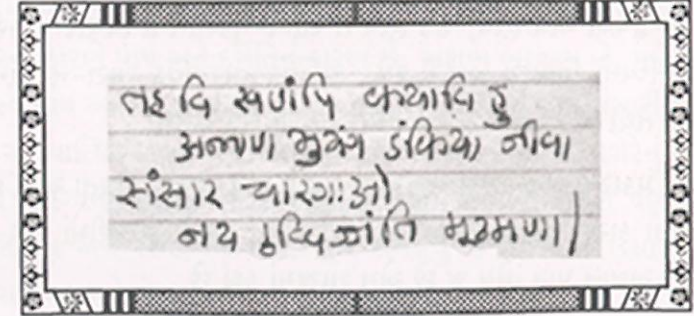 तह वि खणंपि कयावि हु
अन्नाण भुयंग डंकिया जीवा
संसार चारगाओ
नय उव्विज्जंति मूढमणा|